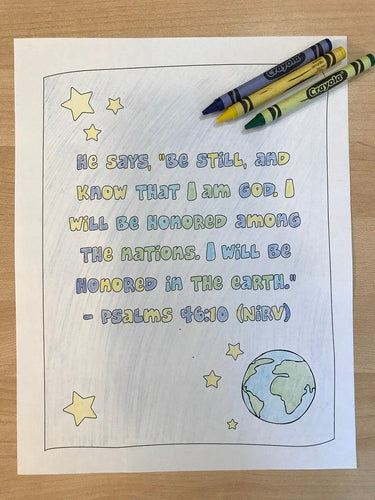 Crayola
Crayola
He says, "Be still, and
know that I am God. I
will be honored among
the nations. I will be
honored in the earth."
- Psalms 46:10 (NiRV)